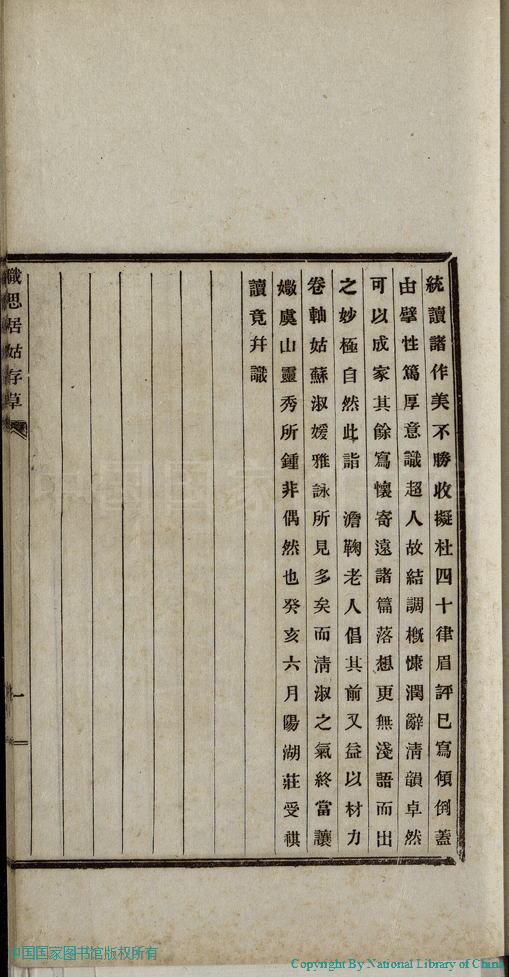 統讀諸作美不勝收擬杜四十律眉評已寫傾倒蓋
由擘性篤厚意識超人故結調槪慷潤辭清韻卓然
可以成家其餘寫懷寄遠諸篇落想更無淺語而出
之妙極自然此詣　澹鞠老人倡其前又益以材力
卷軸姑蘇淑媛雅詠所見多矣而清淑之氣終當讓
媺虞山靈秀所鍾非偶然也癸亥六月陽湖莊受祺
讀竟幷識
職思居姑存草
一
中国国家图书馆版权所有
Copyright By National Library of China